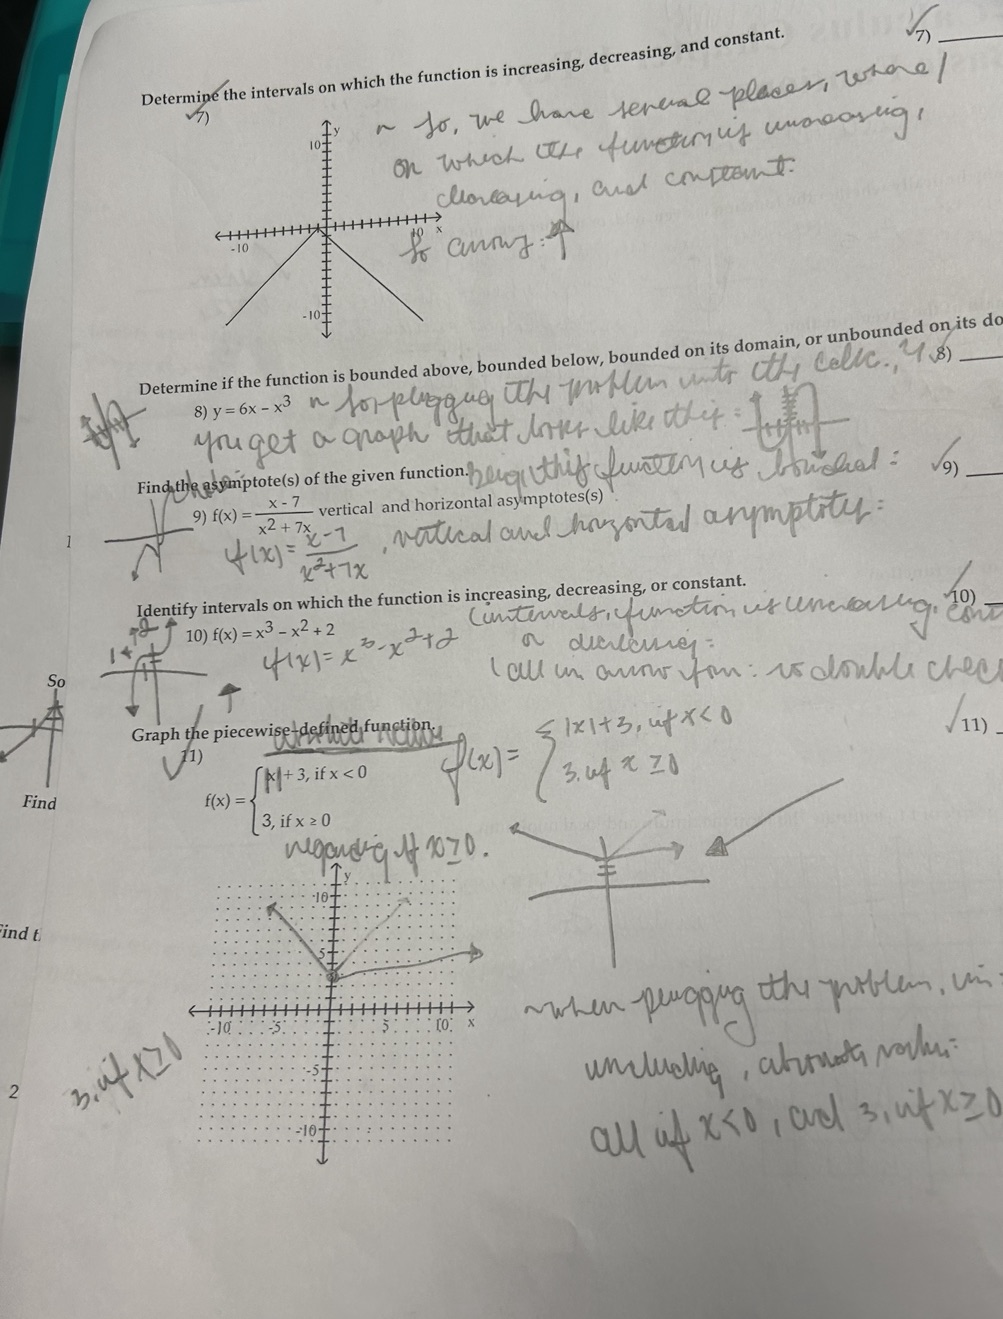 Determine the intervals on which the function is increasing, decreasing, and constant.
7)
7)
y
10
-10
10
x
-10
~ so, we have several places, where/
on which the function is increasing,
decreasing, and constant:
so
Determine if the function is bounded above, bounded below, bounded on its domain, or unbounded on its do
8) y = 6x – x³
8)
plugging the problem into the calc.,
you get a graph that looks like this:
Find the asymptote(s) of the given function.
this function is bounded:
9)
9) f(x) = x - 7 / x² + 7x vertical and horizontal asymptotes(s)
1
f(x) = x-7 / x²+7x , vertical and horizontal asymptotes:
Identify intervals on which the function is increasing, decreasing, or constant.
10)
10) f(x) = x³ – x² + 2
(intervals, function is increasing,
f(x) = x³-x²+2
or decreasing:
So
(all in arrow form: to double chec
Graph the piecewise-defined function.
11)
11)
f(x) = { |x| + 3, if x < 0
3, if x ≥ 0
f(x) = { |x|+3, if x<0
3. if x ≥0
Find
regarding if x≥0.
y
10
5
-10
-5
5
10
x
-5
-10
ind t
~when plugging the problem, in:
including, absolute
all if x<0, and 3, if x≥0
3, if x≥0
2